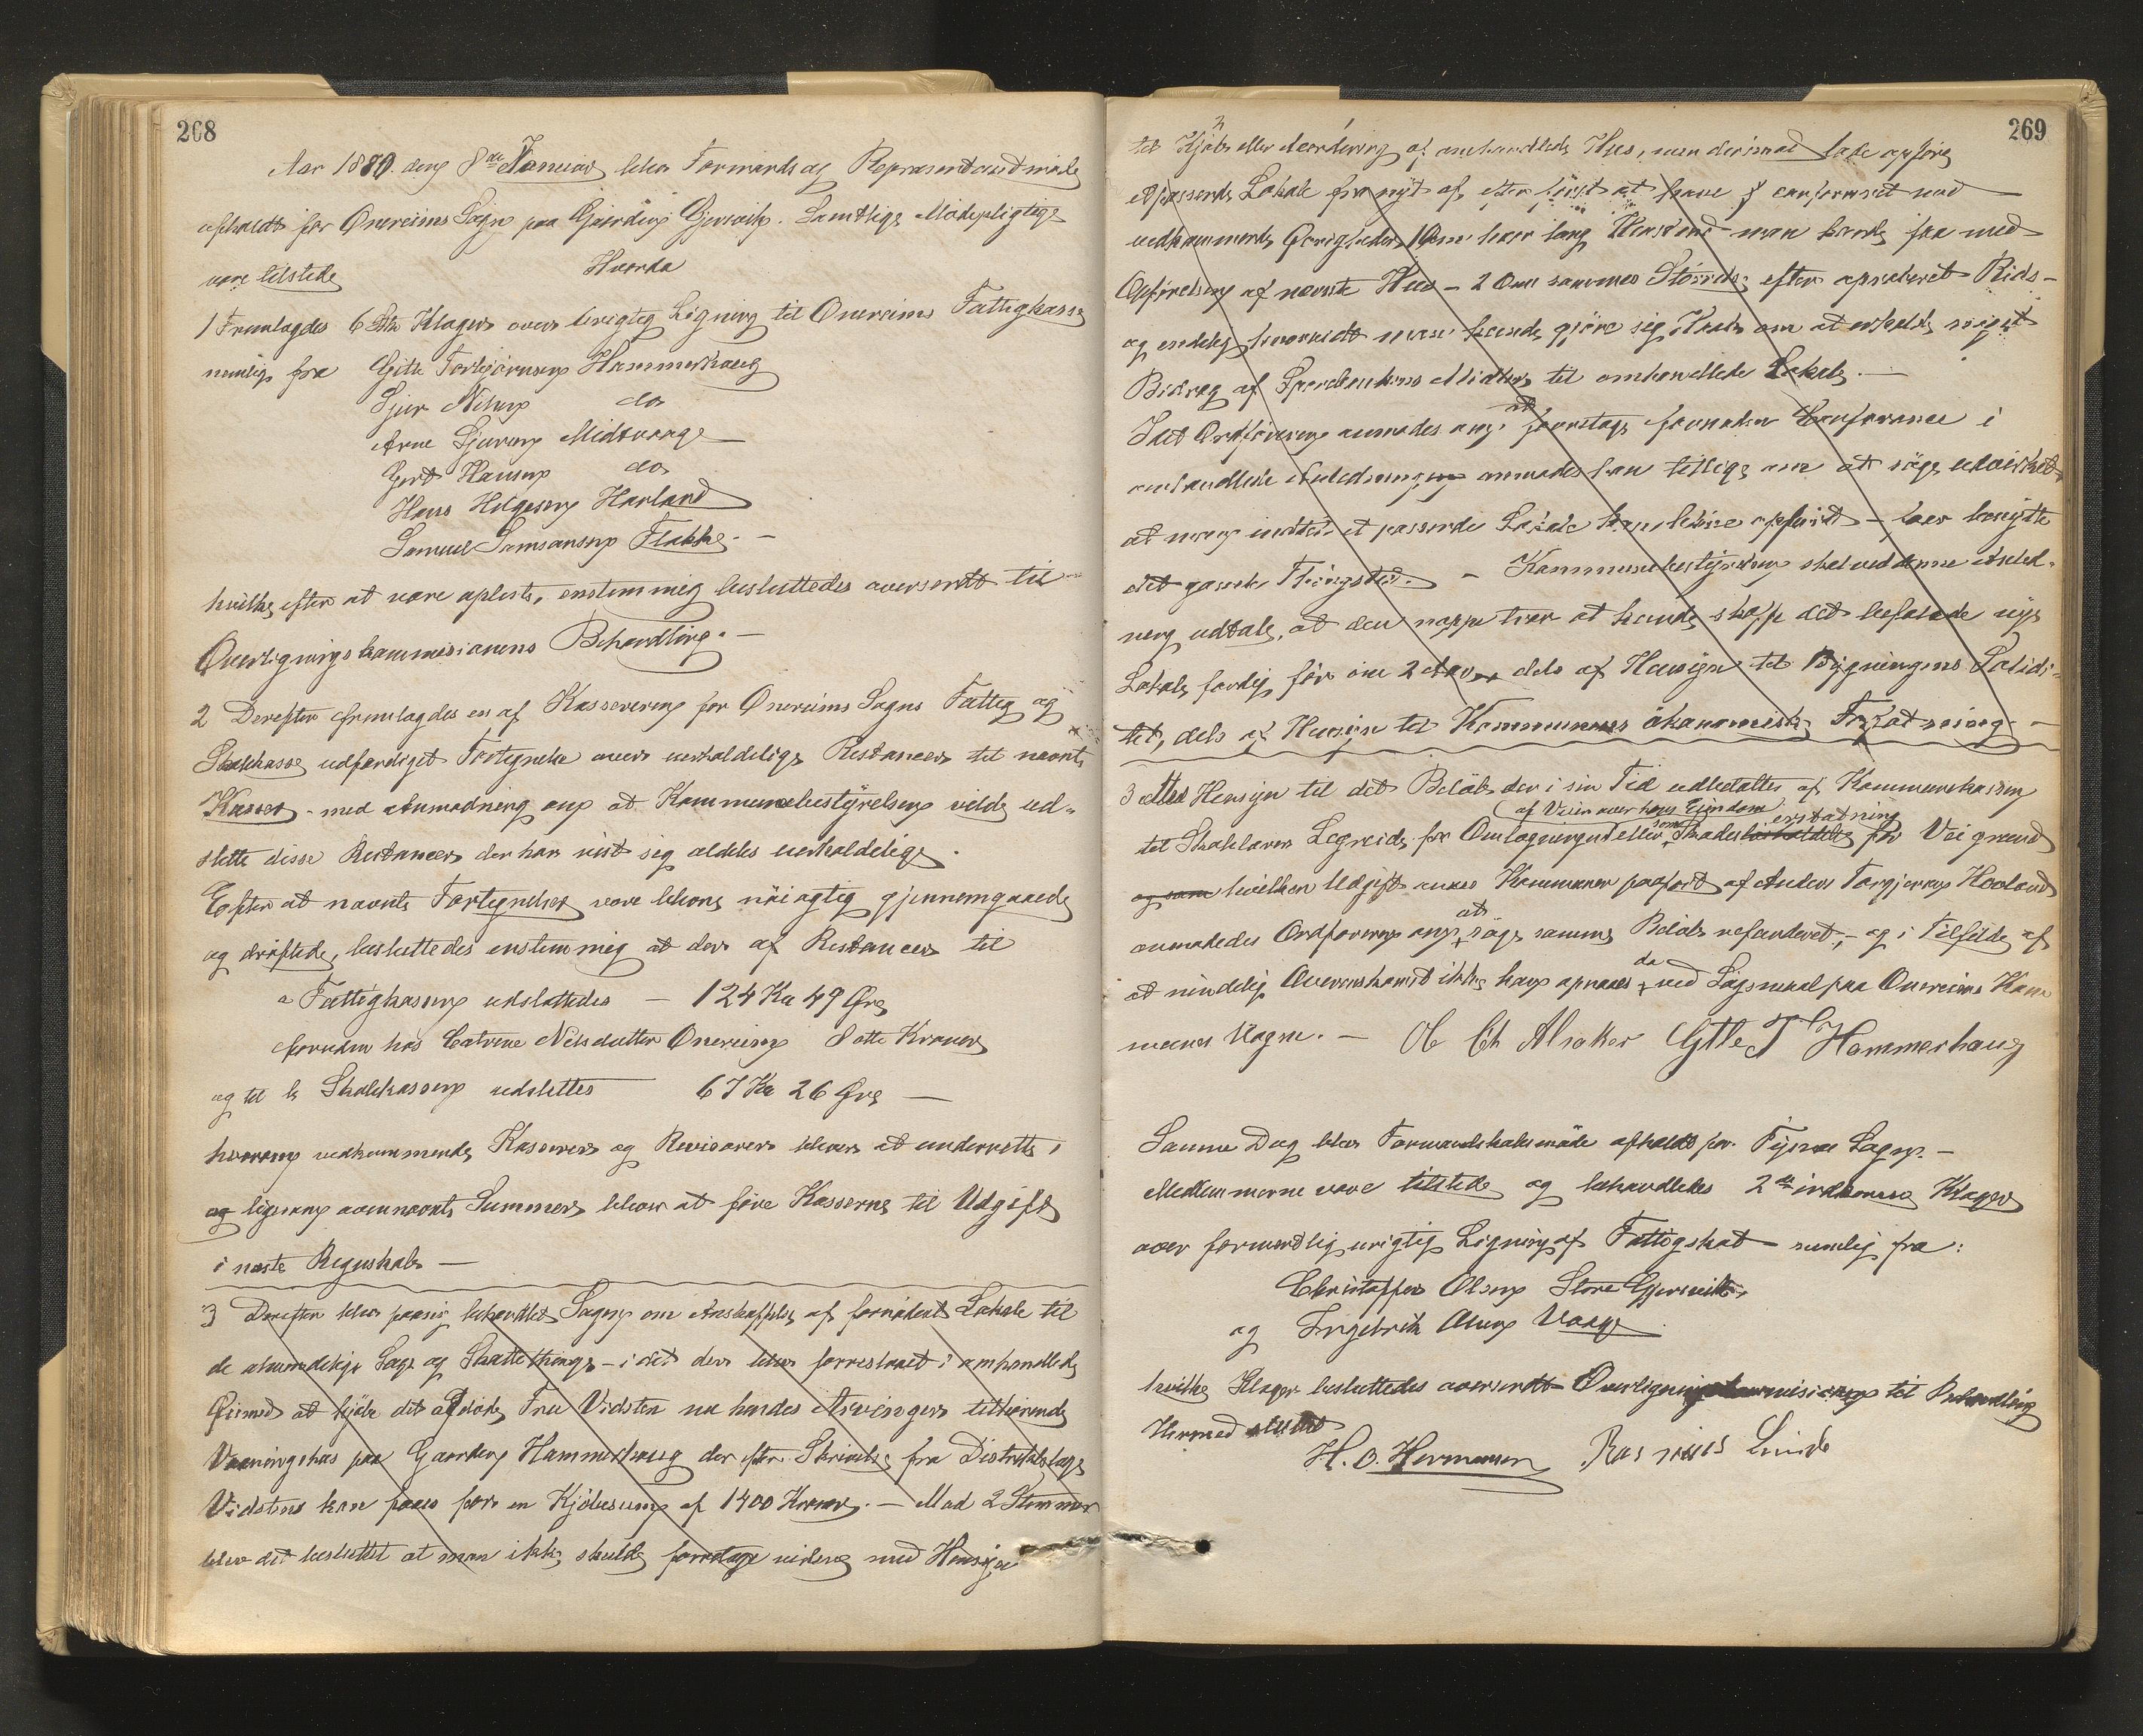 268
Aar 1880. den 8de Januar blev Formands og Repræsentantmøde
afholdt for Onereims Sogn paa Gjærden Gjersvik. Samtlige Mødepligtige
vare tilstede
Hvorda
1 Fremlagdes 6 Stk Klager over urigtig Ligning til Onereims Fattigkasse
nemlig fra Gitle Torbjørnsen Hammerhaug
Sjur Nilsen do
Arne Sjursen Midtvaage
Gert Hansen do
Hans Helgesen Harland
Samuel Samsonsen Flakke. -
hvilke, efter at være oplæste, enstemmig besluttedes oversendt til
Overligningskommisionens Behandling. -
2 Derefter fremlagdes en af Kassereren for Onereims Sogns Fattig og
Skolekasse udfærdiget Fortegnelse over uerholdelige Restancer til nævnte
Kasser - med Anmodning om at Kommunebestyrelsen vilde ud-
slette disse Restancer der har vist sig aldeles uerholdelige.
Efter at nævnte Fortegnelser vare bleven nøiagtig gjennemgaaede
og drøftede, besluttedes enstemmig at der af Restancer til
a Fattigkassen udslettedes - 124 Kr 49 Øre
foruden hos Catrine Nilsdatter Onereim 8 otte Kroner
og til b Skolekassen udslettes 67 Kr 26 Øre -
hvorom vedkommende Kasserer og Revisorer bliver at underrette,
og ligesom ovennævnte Summer bliver at føre Kasserne til Udgift
i næste Regnskab -
3 Derefter blev paany behandlet Sagen om Anskaffelse af fornødent Lokale til
de almindelige Sage og Skattethinge - i det der blev forreslaaet i omhandlede
Øiemed at kjøbe det afdøde Fru Vidsten nu hendes Arvinger tilhørende
Vaaningshus paa Gaarden Hammerhaug der efter Skrivelse fra Distriktslæge
Vidstens kan faaes for en Kjøbesum af 1400 Kroner. - Med 2 Stemmer
blev det besluttet at man ikke skulde forretage videre med Hensyn
269
til Kjøb eller Vurdering af omhandlede Hus, men derimod lade opføre
et passende Lokale fra nyt af, efter først at have conformeret med
vedkommende Øvrigheder, 1 Om hvor lang Henstand man kunde faa med
Opførelsen af nævnte Hus - 2 Om sammes Størrelse efter approberet Rids -
og endelig hvorvidt man kunde gjøre sig Haab om at erholde noget
Bidrag af Sparebankens Midler til omhandlede Lokale. -
Idet Ordføreren anmodes om at forretage fornøden Conferance i
omhandlede Anledning anmodes han tillige om at søge udvirket
at man indtil et passende Lokale kan blive opført - faar benytte
det gamle Thingsted. - Kommunebestyrelsen skal ved denne Anled-
ning udtale, at den neppe tror at kunde skaffe det befalede nye
Lokale færdig før om 2 Aar, dels af Hensyn til Bygningens Solidi-
tet, dels af Hensyn til Kommunens økonomiske Forfatning. -
3 Med Hensyn til det Beløb der i sin Tid udbetaltes af Kommunekassen
af Veien over hans Eiendom
som erstatning
til Skolelærer Legreid, for Omlægningen eller Skadesløsholdelse for Vei grund
og som hvilken Udgift ansees Kommunen paaført af Anders Torgjersen Hovland
at
anmodedes Ordføreren om søge samme Beløb refunderet, - og i Tilfælde af
da
at mindelig Overenskomst ikke kan opnaaes ved Søgsmaal paa Onereims Kom
munes Vegne. - O Ch Alsaker Gitle T Hammerhaug
Samme Dag blev Formandskabsmøde afholdt for Tysnæs Sogn. -
Medlemmerne vare tilstede og behandledes 2de indkomne Klager
over formentlig urigtig Ligning af Fattigskat nemlig fra:
Christoffer Olsen Store Gjersvik,
og Ingebrik Olsen Vaage
hvilke Klager besluttedes oversendt Overligningskommisionen til Behandling
Hermed sluttet
H. O. Hermansen Rasmus Lunde